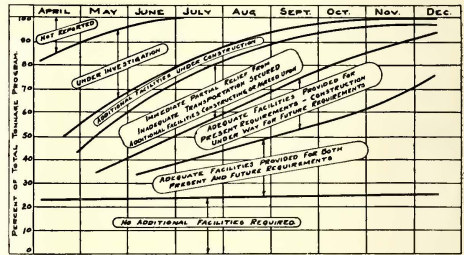 APRIL MAY JUNE JULY AUG. SEPT. OCT. NOV. DEC.
PERCENT OF TOTAL TONNAGE PROGRAM.
100
90
80
70
60
50
40
30
20
10
0
NOT REPORTED
UNDER INVESTIGATION
ADDITIONAL FACILITIES UNDER CONSTRUCTION
IMMEDIATE PARTIAL RELIEF FROM
INADEQUATE TRANSPORTATION SECURED
ADDITIONAL FACILITIES CONSTRUCTING OR AGREED UPON
ADEQUATE FACILITIES PROVIDED FOR
PRESENT REQUIREMENTS - CONSTRUCTION
UNDER WAY FOR FUTURE REQUIREMENTS
ADEQUATE FACILITIES PROVIDED FOR BOTH
PRESENT AND FUTURE REQUIREMENTS
NO ADDITIONAL FACILITIES REQUIRED